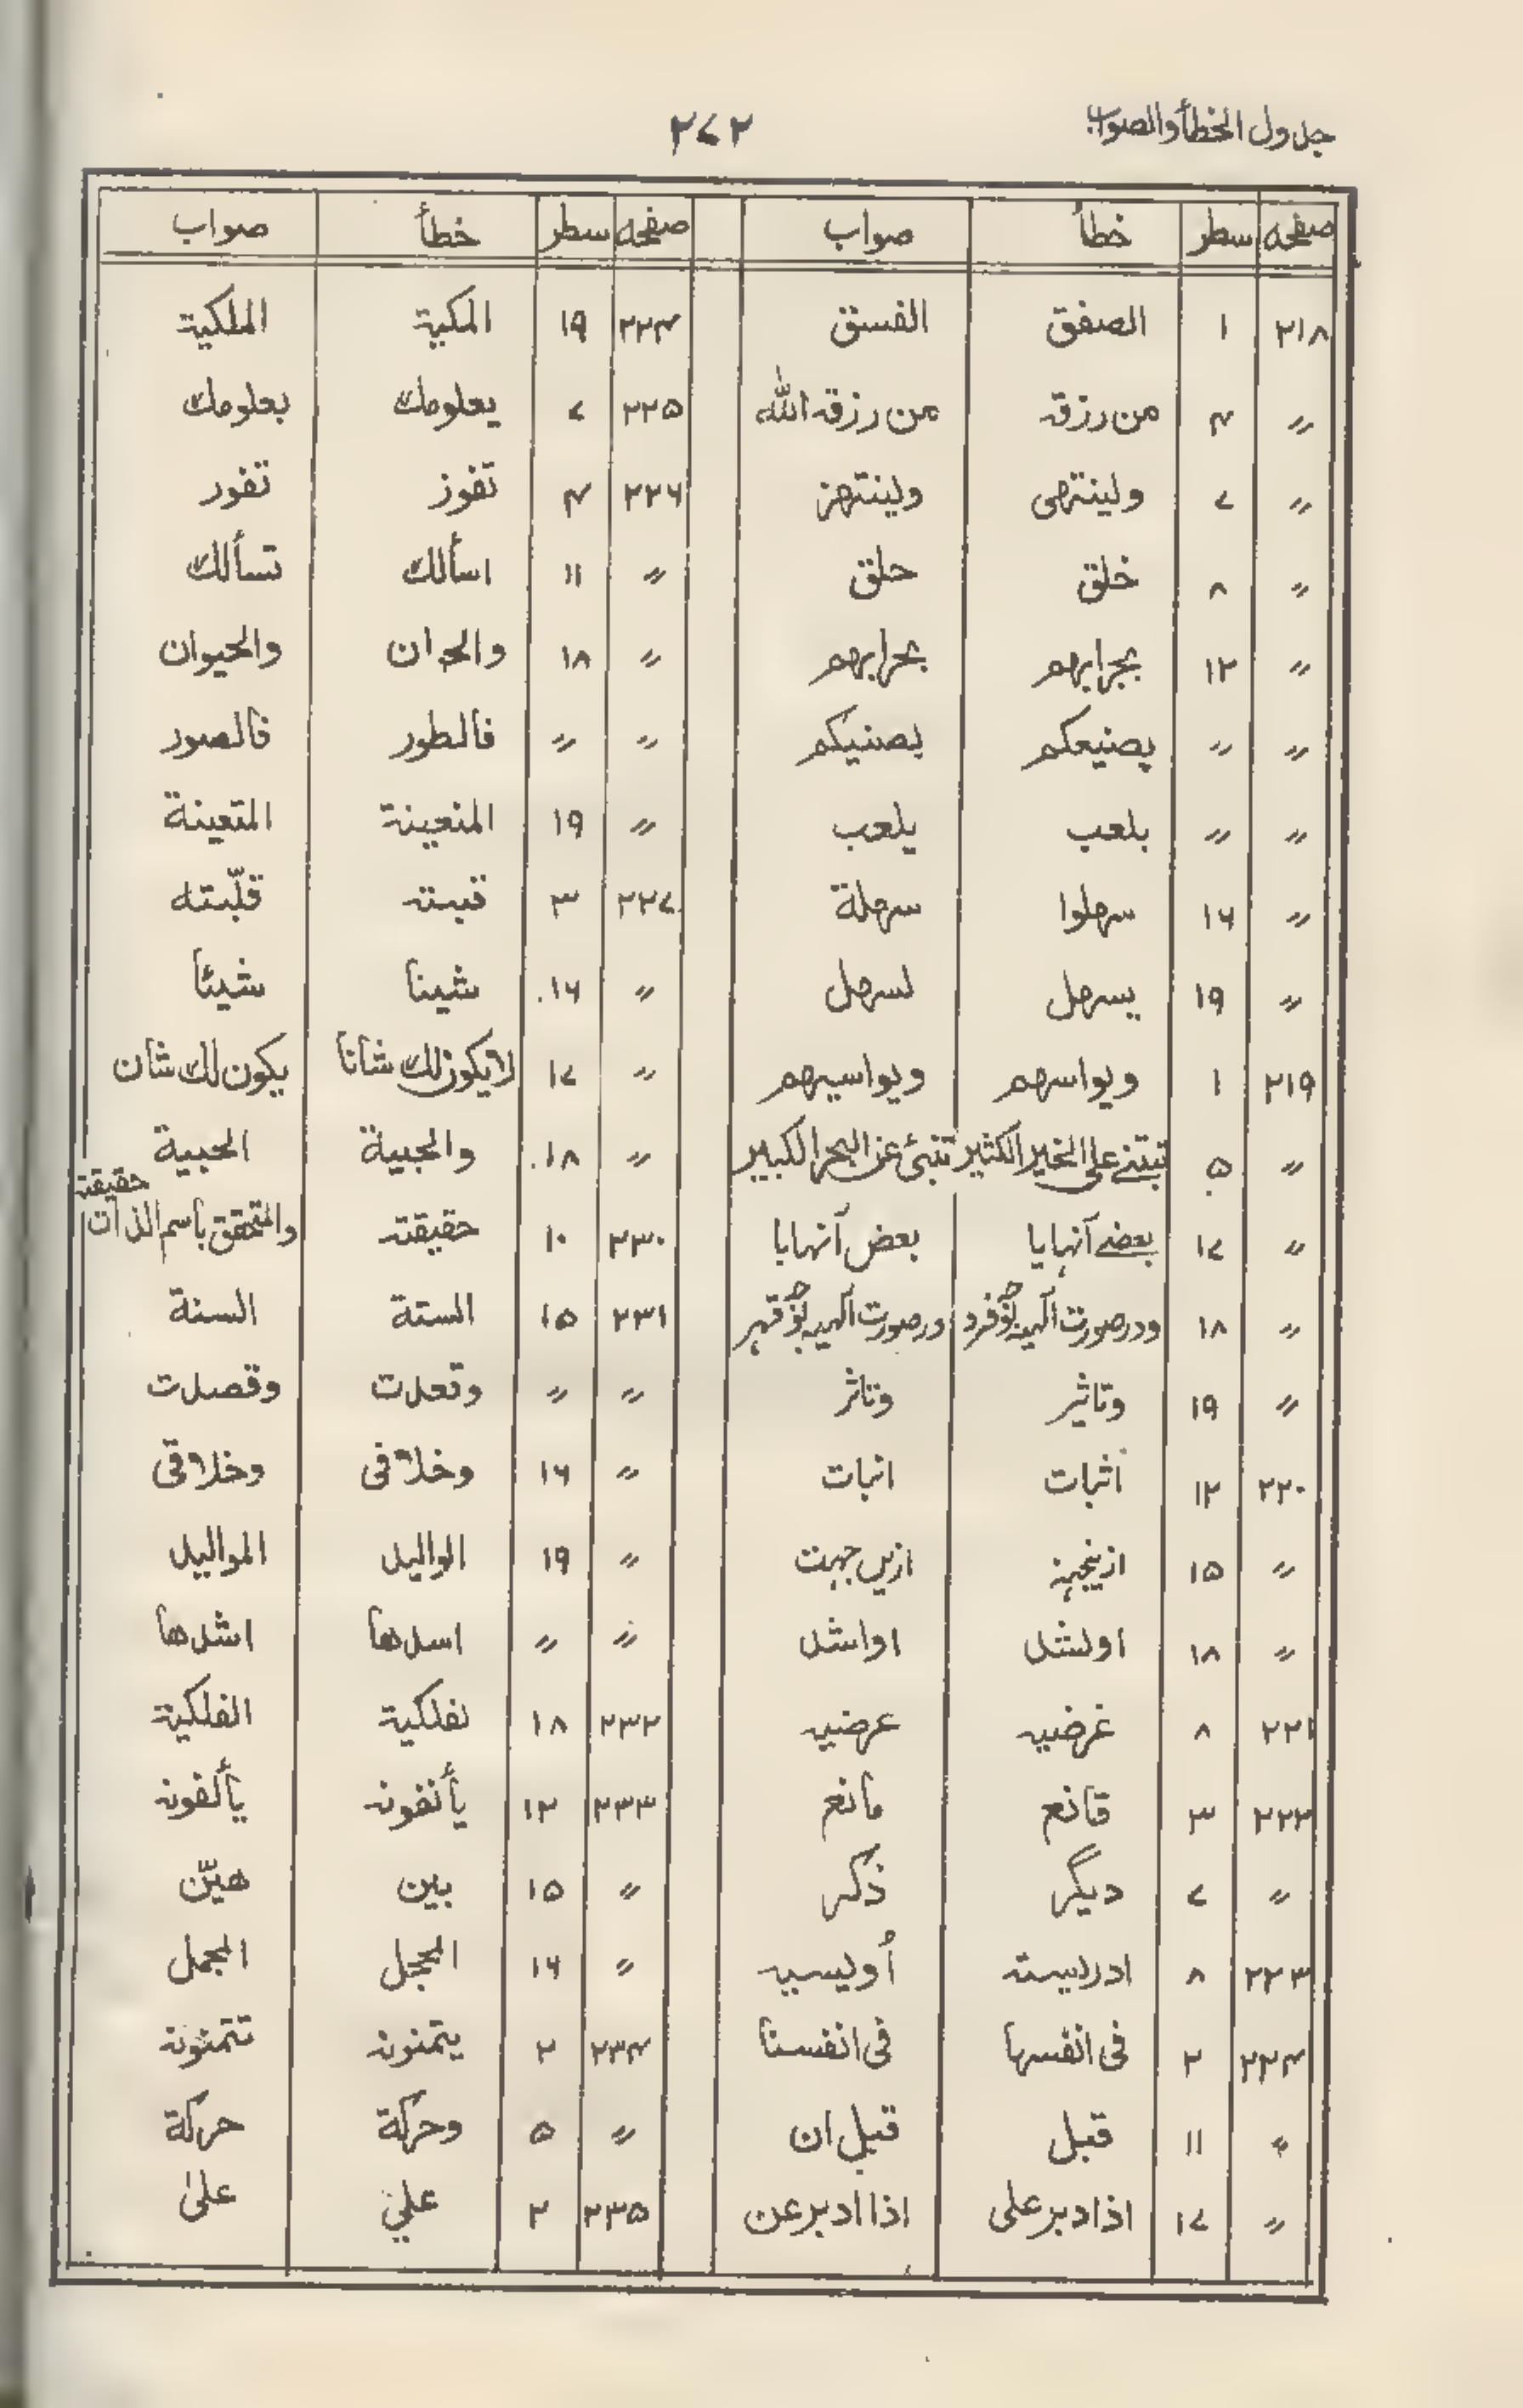 جدول الخطأ والصواب ٢٧٢
صفحه سطر خطأ صواب صفحه سطر خطأ صواب
٢١٨ ١ الصفق الفستق ٢٢۴ ١٩ المكية الملكية
〃 ۴ من رزقه من رزقه الله ٢٢۵ ٧ يعلومك بعلومك
〃 ٧ ولينتهى ولينتهز ٢٢۶ ۴ تفوز تفور
〃 ٨ خلق حلق 〃 ١١ اسألك تسألك
〃 ١٢ بجرابهم بحرابهم 〃 ١٨ والحوان والحيوان
〃 〃 بصنيعكم بصنيكم 〃 〃 فالطور فالصور
〃 〃 بلعب يلعب 〃 ١٩ المنعينة المتعينة
〃 ١۶ سهلوا سهلة ٢٢٧ ٣ قبسته قلّبته
〃 ١٩ يسهل لسهل 〃 ١۶ شينا شيئا
٢١٩ ١ ويواسهم ويواسيهم 〃 ١٧ لا يكون لك شانا يكون لك شان
〃 ۵ تبتنے على الخير الكثير تنبئ عن البحر الكبير 〃 ١٨ والجبية الحبية
〃 ١٧ بعضے آنهايا بعض آنهابا ٢٣٠ ١٠ حقيقته والمتحقق بأسم الذات حقيقته
〃 ١٨ ودر صورت آلهيه فرد در صورت آلهيه قهر ٢٣١ ١۵ الستة السنة
〃 ١٩ وتاثير وتاثر 〃 〃 وقعدت وقصدت
٢٢٠ ١٢ اثبات انبات 〃 ١۶ وخلافى وخلاقى
〃 ١۵ ازينجهة ازين جهت 〃 ١٩ الواليد المواليد
〃 ١٨ اولشد اواشد 〃 〃 اسدها اشدها
٢٢١ ٨ غرضيه عرضيه ٢٣٢ ١٨ نفلكية الفلكية
٢٢٢ ٣ قانع مانع ٢٣٣ ١٢ يأنفونه يألفونه
〃 ٧ ديگر ذكر 〃 ١۵ بين هيّن
٢٢٣ ٨ ادريسته أويسيه 〃 ١۶ المجبل المجمل
٢٢۴ ٢ فى انفسها فى انفسنا ٢٣۴ ٢ يتمنونه تتمنونه
〃 ١١ قبل قبل ان 〃 ۵ وحركة حركة
〃 ١٧ اذا دبر على اذا ادبر عن ٢٣۵ ٢ علي علىٰ